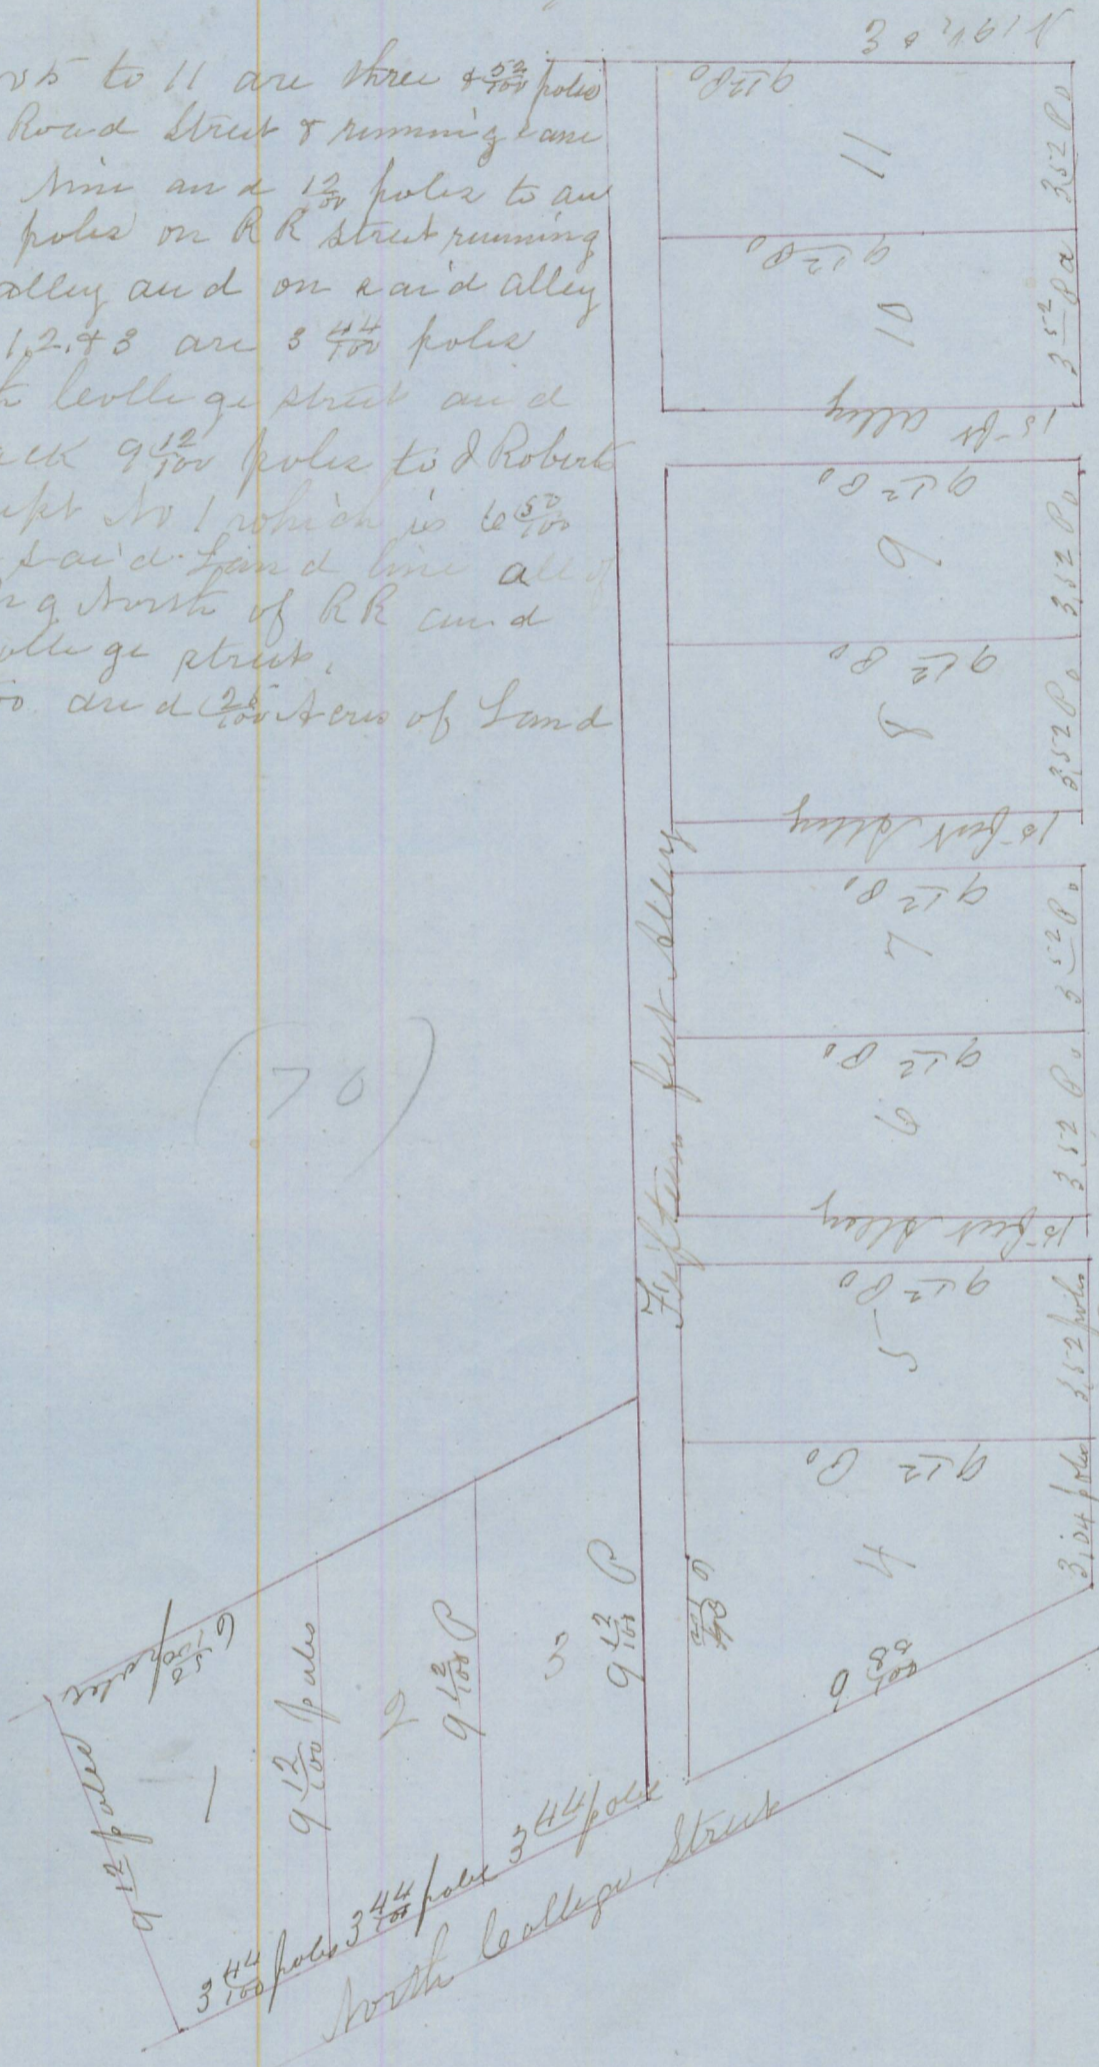 5 to 11 are three & 52/100 poles
Road Street & running
Nine and 12/100 poles to an
poles on RR street running
alley and on said alley
1, 2, & 3 are 3 44/100 poles
College street and
9 12/100 poles to J Roberts
No 1 which is 6 50/100
said Land line all of
North of RR and
street,
and 25/100 Acres of Land
(70)
9 12 Po
11
3,52 Po
9 12 Po
10
3 52 Po
15 ft alley
9 12 Po
9
3,52 Po
9 12 Po
8
3,52 Po
15 feet Alley
9 12 Po
7
3 52 Po
9 12 Po
6
3,52 Po
15 feet Alley
9 12 Po
5
3,52 poles
9 12 Po
4
3,04 poles
Fifteen feet Alley
6 50/100 poles
9 12 poles
1
9 12/100 poles
2
9 12/100 P
3
9 12/100 P
3 44/100 poles
3 44/100 poles
3 44 poles
North College Street